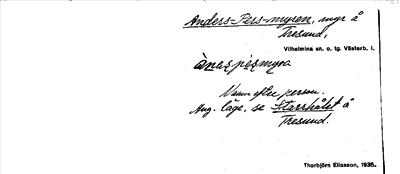 Anders-Pers-myren, myr å
Tresund,
Vilhelmina sn. o. tg. Västerb. l.
ànaṣpéṣmyra
Namn efter person.
Ang. läge, se Starrhålet å
Tresund.
Thorbjörn Eliasson, 1935.